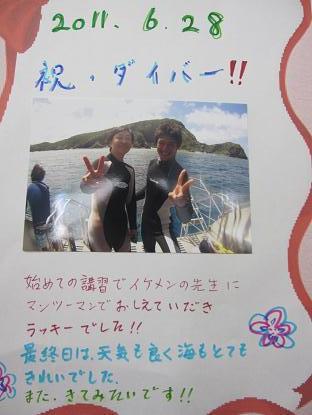 2011. 6. 28
祝、ダイバー!!
始めての講習でイケメンの先生に
マンツーマンでおしえていだき
ラッキーでした!!
最終日は、天気も良く海もとても
きれいでした。
また、きてみたいです!!